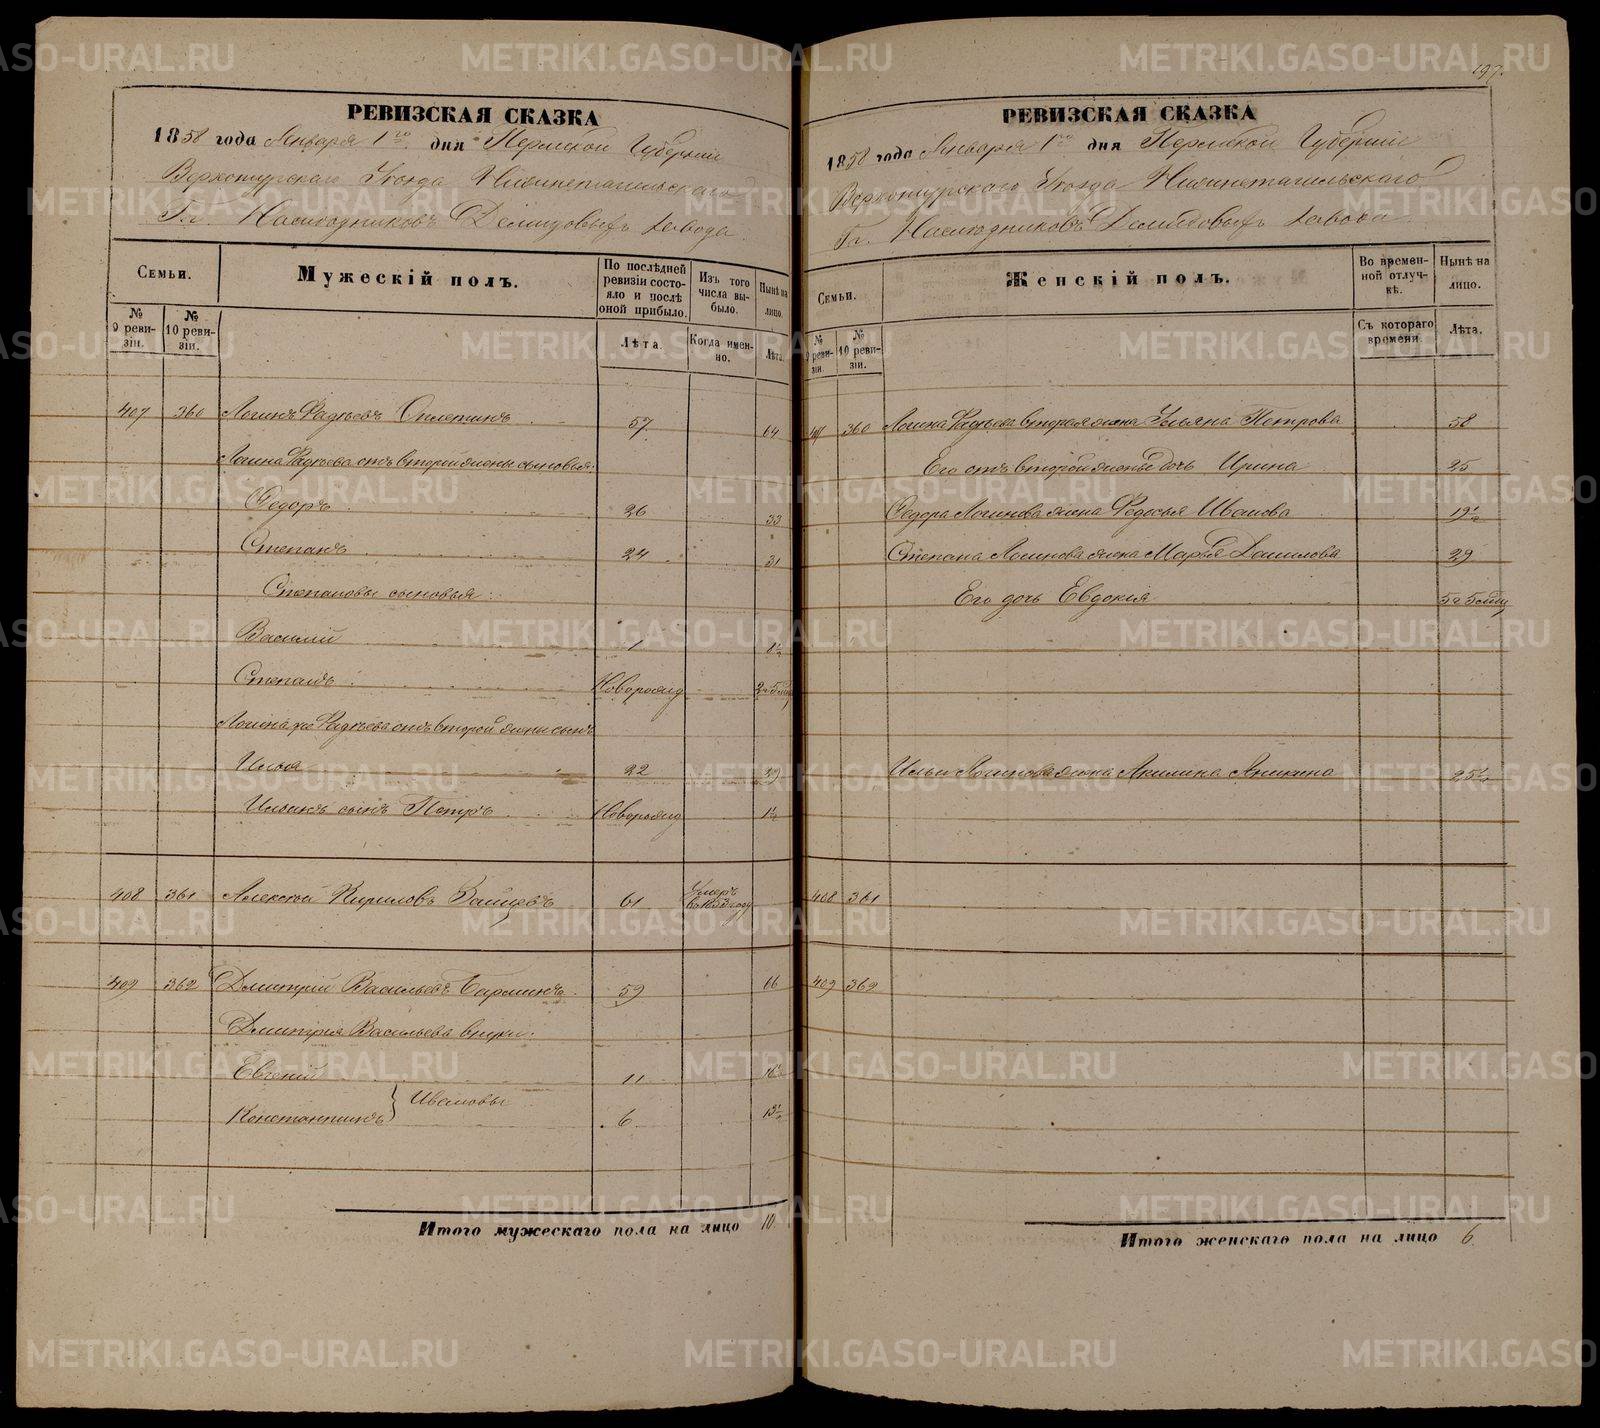 РЕВИЗСКАЯ СКАЗКА
1858 года Января 1го дня Пермской Губернии
Верхотурскаго Уѣзда Нижнетагильскаго
Гг. Наслѣдниковъ Демидовыхъ завода
Семьи.
Мужескій полъ.
По послѣдней ревизіи состояло и послѣ оной прибыло.
Изъ того числа выбыло.
Нынѣ на лицо.
№ 9 ревизіи.
№ 10 ревизіи.
Лѣта.
Когда именно.
Лѣта.
407 360 Логинъ Фадѣевъ 57 64
Логина Фадѣева отъ второй жены сыновья:
Федоръ 26 33
Степанъ 24 31
Степановы сыновья:
Василий 1 8½
Степанъ Новорожд 2 г 5 мѣц
Логина же Фадѣева отъ второй жены сынъ
Илья 22 29
Ильинъ сынъ Петръ Новорожд 1½
408 361 Алексѣй Кириловъ Зайцевъ 61 Умеръ въ году
409 362 Дмитрий Васильевъ 59 66
Дмитрия Васильева внуки:
Евгений 11 18½
Константинъ } Ивановы 6 13½
Итого мужескаго пола на лицо 10.
197.
РЕВИЗСКАЯ СКАЗКА
1858 года Января 1го дня Пермской Губерніи
Верхотурскаго Уѣзда Нижнетагильскаго
Гг. Наслѣдниковъ Демидовыхъ завода
Семьи.
Женскій полъ.
Во временной отлучкѣ.
Нынѣ на лицо.
№ 9 ревизіи.
№ 10 ревизіи.
Съ котораго времени.
Лѣта.
407 360 Логина Фадѣева вторая жена Ульяна Петрова 58
Его отъ второй жены дочь Ирина 25
Федора Логинова жена Федосья Иванова 19½
Степана Логинова жена Марья Данилова 29
Его дочь Евдокия 5 г 5 мѣц
Ильи Логинова жена Акилина Аникина 25½
408 361
409 362
Итого женскаго пола на лицо 6
METRIKI.GASO-URAL.RU